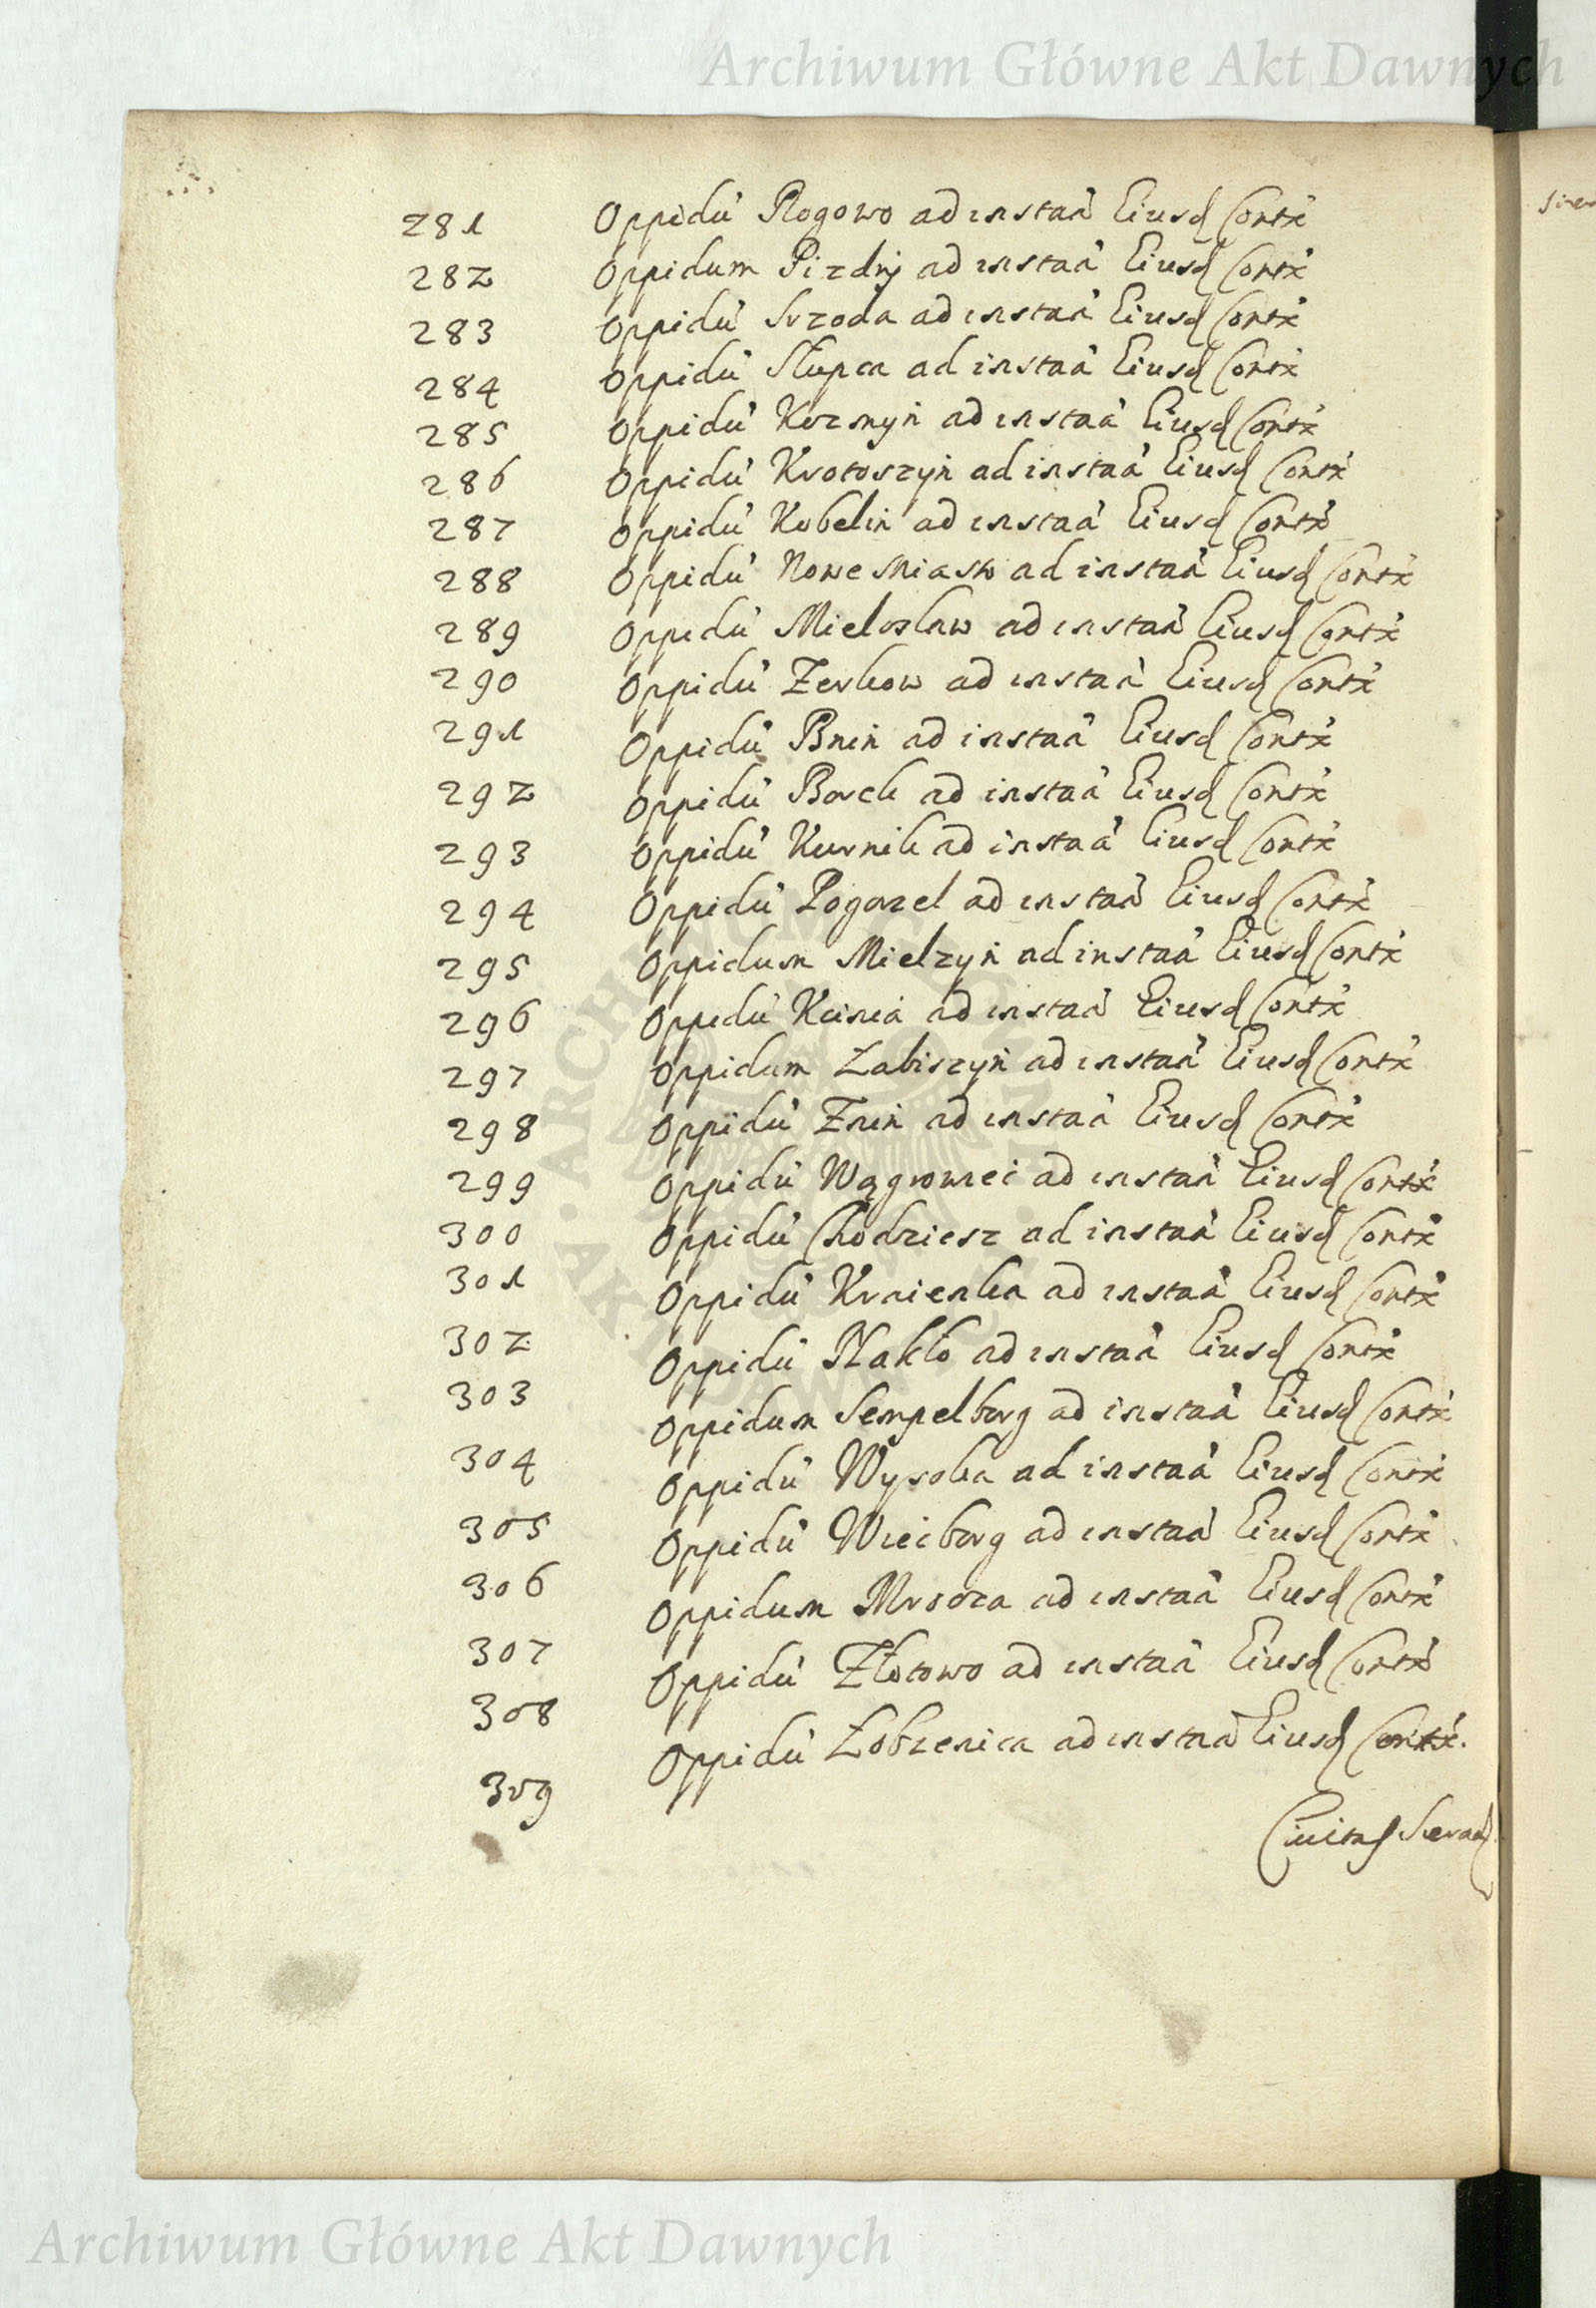 Archiwum Główne Akt Dawnych
281 Oppidu' Rogowo ad instaã Eiusd Contx
282 Oppidum Pizdrij ad instaã Eiusd Contx
283 Oppidu' Srzoda ad instaã Eiusd Contx
284 Oppidu' Słupca ad instaã Eiusd Contx
285 Oppidu' Kozmyn ad instaã Eiusd Contx
286 Oppidu' Krotoszyn ad instaã Eiusd Contx
287 Oppidu' Kobelin ad instaã Eiusd Contx
288 Oppidu' Nowe Miasto ad instaã Eiusd Contx
289 Oppidu' Mieloslaw ad instaã Eiusd Contx
290 Oppidu' Zerkow ad instaã Eiusd Contx
291 Oppidu' Bnin ad instaã Eiusd Contx
292 Oppidu' Borek ad instaã Eiusd Contx
293 Oppidu' Kurnik ad instaã Eiusd Contx
294 Oppidu' Pogorzel ad instaã Eiusd Contx
295 Oppidum Mielzyn ad instaã Eiusd Contx
296 Oppidu' Kcinia ad instaã Eiusd Contx
297 Oppidum Labiszyn ad instaã Eiusd Contx
298 Oppidu' Znin ad instaã Eiusd Contx
299 Oppidu' Wągrowiec ad instaã Eiusd Contx
300 Oppidu' Chodziesz ad instaã Eiusd Contx
301 Oppidu' Kraienka ad instaã Eiusd Contx
302 Oppidu' Nakło ad instaã Eiusd Contx
303 Oppidum Sempelborg ad instaã Eiusd Contx
304 Oppidu' Wysoka ad instaã Eiusd Contx
305 Oppidu' Wieciborg ad instaã Eiusd Contx
306 Oppidum Mrocza ad instaã Eiusd Contx
307 Oppidu' Złotowo ad instaã Eiusd Contx
308 Oppidu' Lobzenica ad instaã Eiusd Contx.
309
Ciuitas Sierad
Archiwum Główne Akt Dawnych